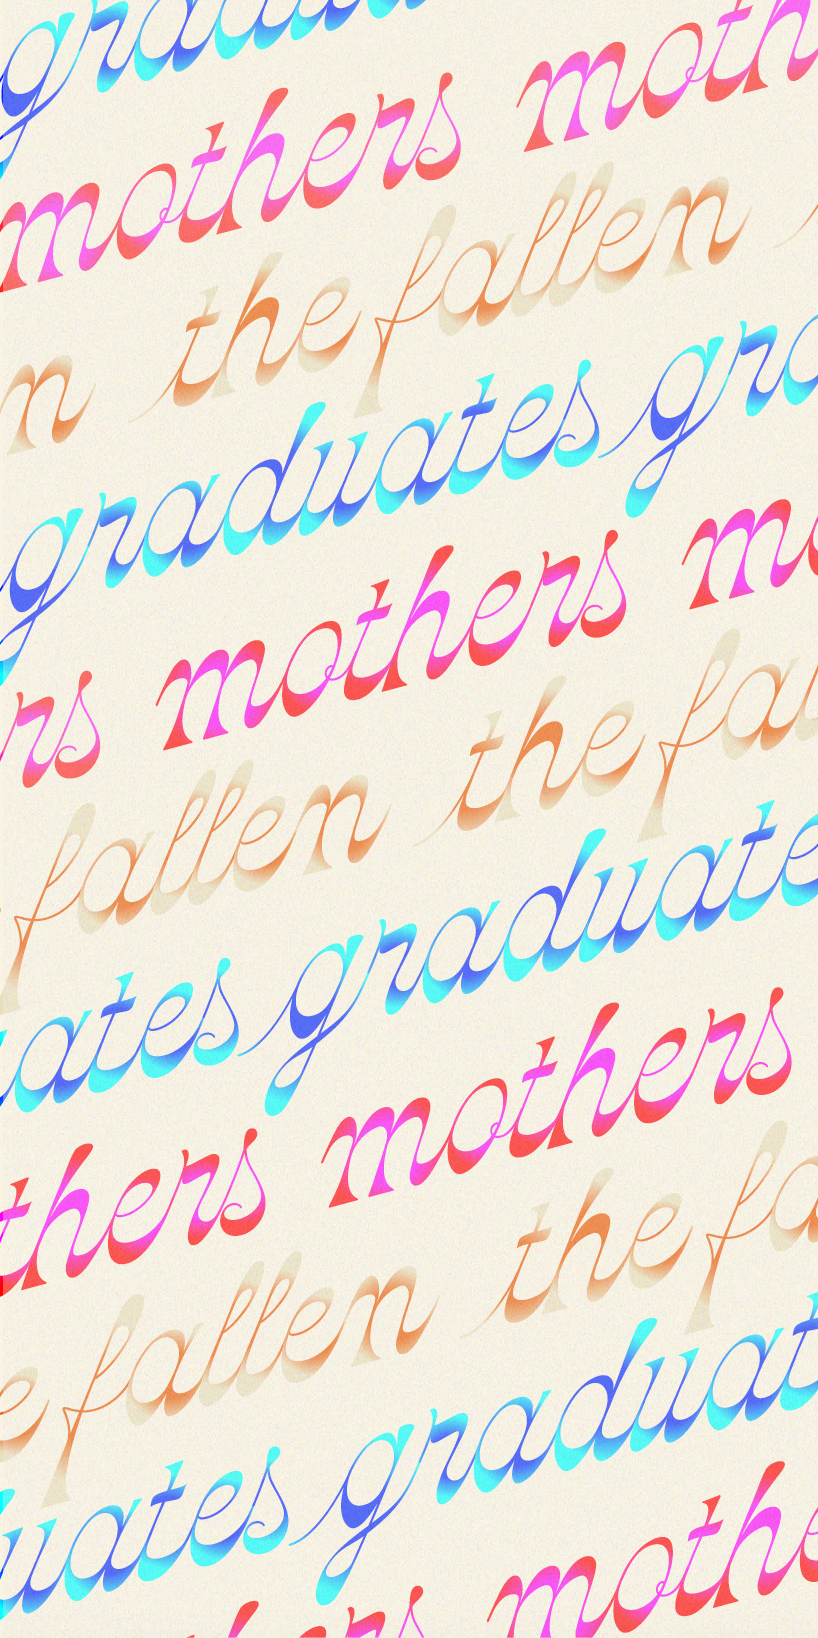 gradua
mothers moth
n the fallen
graduates gra
rs mothers mo
fallen the fal
ates graduate
thers mothers
e fallen the fa
uates graduat
hers mothe